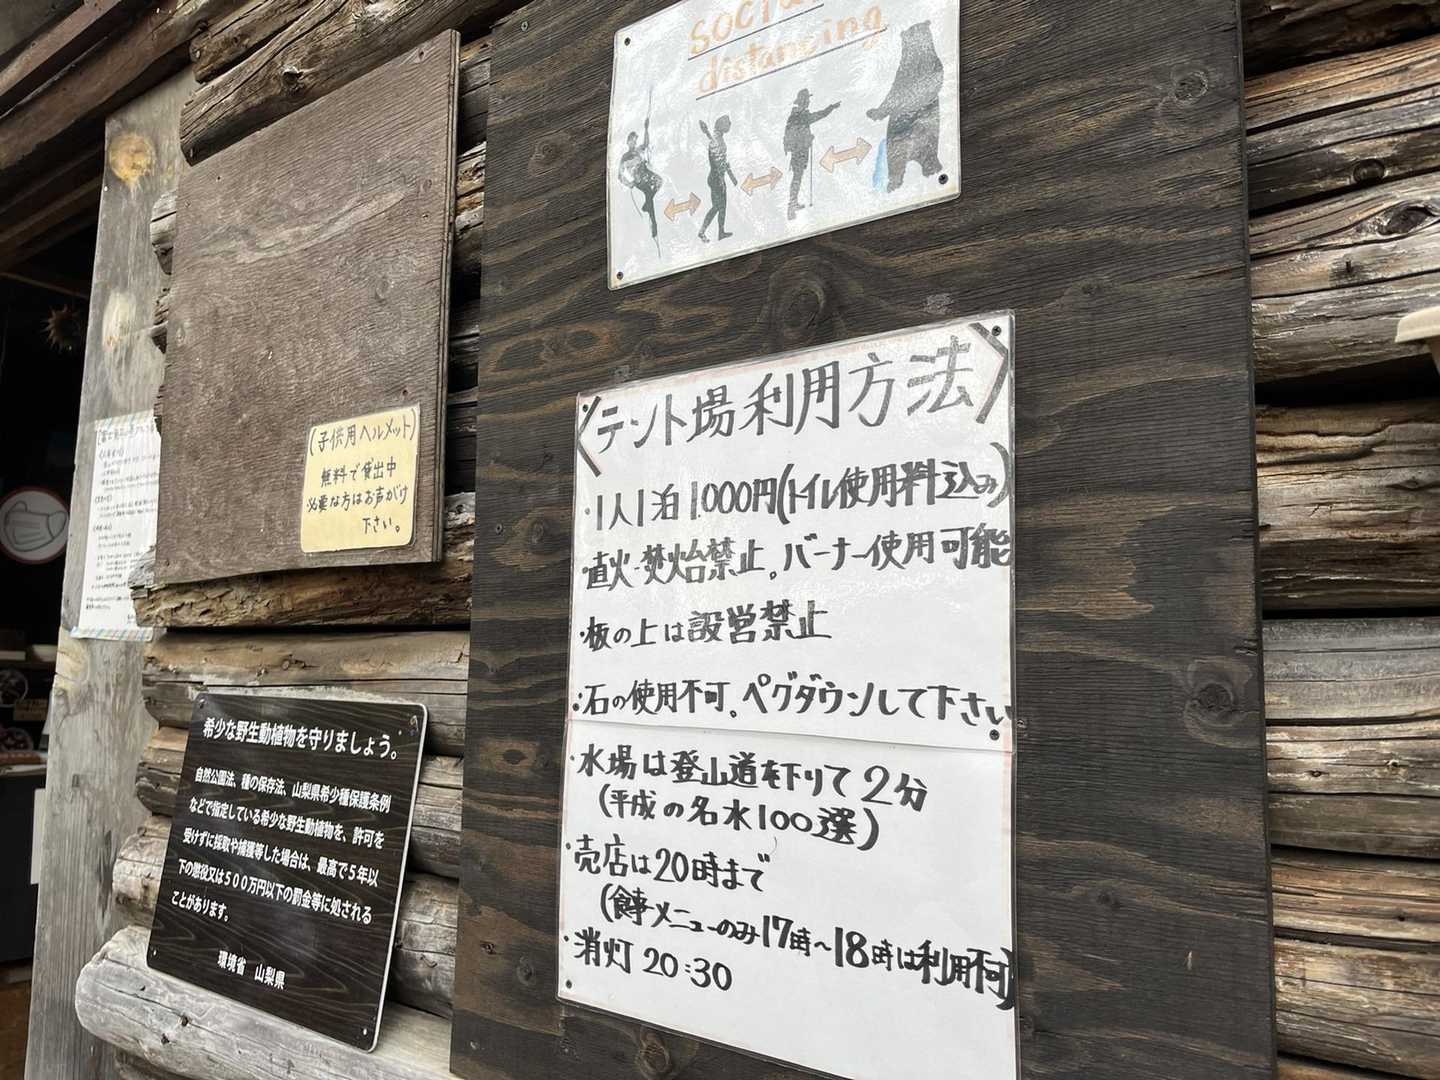 social
distancing
〈テント場利用方法〉
・1人1泊1.000円(トイレ使用料込み)
・直火・焚火台禁止。バーナー使用可能
・板の上は設営禁止
・石の使用不可。ペグダウンして下さい
・水場は登山道を下りて2分
(平成の名水100選)
・売店は20時まで
(食事メニューのみ17時〜18時は利用不可)
・消灯 20:30
(子供用ヘルメット)
無料で貸出中
必要な方はお声がけ
下さい。
希少な野生動植物を守りましょう。
自然公園法、種の保存法、山梨県希少種保護条例
などで指定している希少な野生動植物を、許可を
受けずに採取や捕獲等した場合は、最高で5年以
下の懲役又は500万円以下の罰金等に処される
ことがあります。
環境省 山梨県